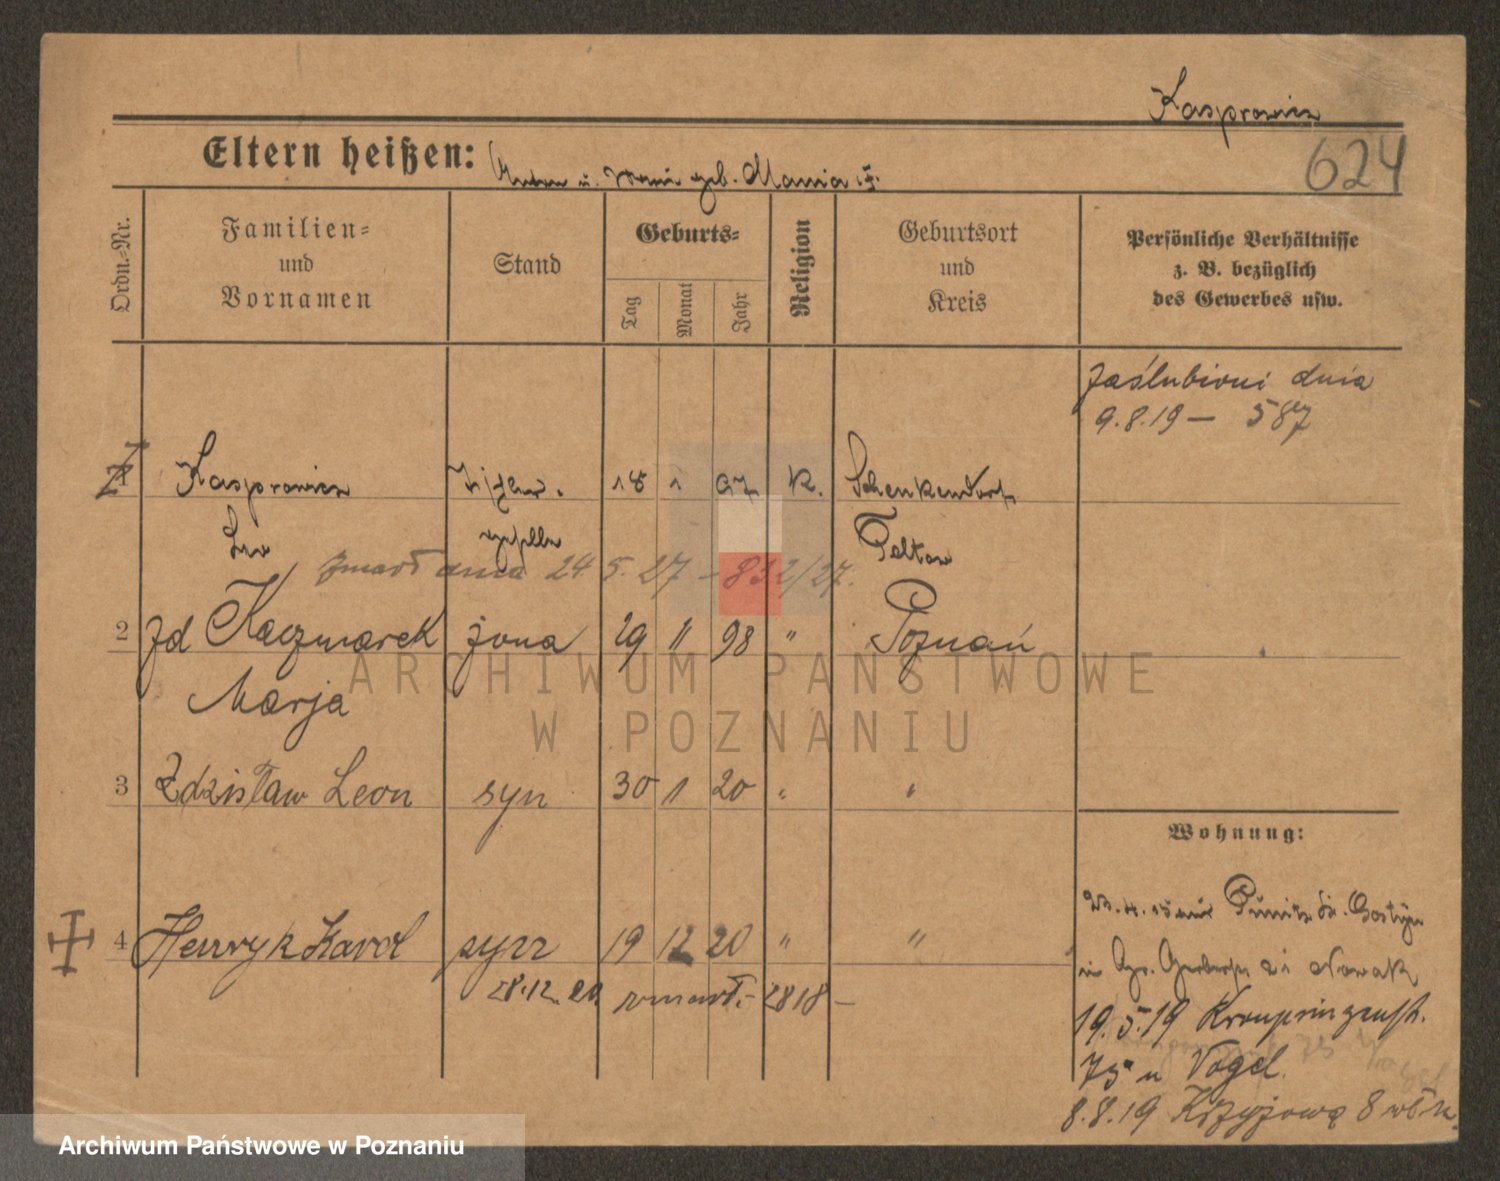 Kasprowicz
624
Eltern heißen:
u. geb. Mania
Ordn.-Nr.
Familien-
und
Vornamen
Stand
Geburts-
Tag
Monat
Jahr
Religion
Geburtsort
und
Kreis
Persönliche Verhältnisse
z. B. bezüglich
des Gewerbes usw.
zaślubieni dnia
9.8.19 — 587
1 Kasprowicz 18 1 97 K. Schenkendorf
Leo geselle Teltow
zmarł dnia 24 5. 27 – 832/27.
2 zd Kaczmarek żona 29 11 98 " Poznań
Marja
3 Zdzisław Leon syn 30 1 20 " "
4 Henryk Karol syn 19 12 20 " "
28.12.20 zmarł.– 2818 –
Wohnung:
Punitz Kr. Gostyn
in Gr. Nowak
19.5.19 Kronprinzenstr.
75a u Vogel.
8.8.19 Krzyżowa 8 wł m.
ARCHIWUM PAŃSTWOWE
W POZNANIU
Archiwum Państwowe w Poznaniu